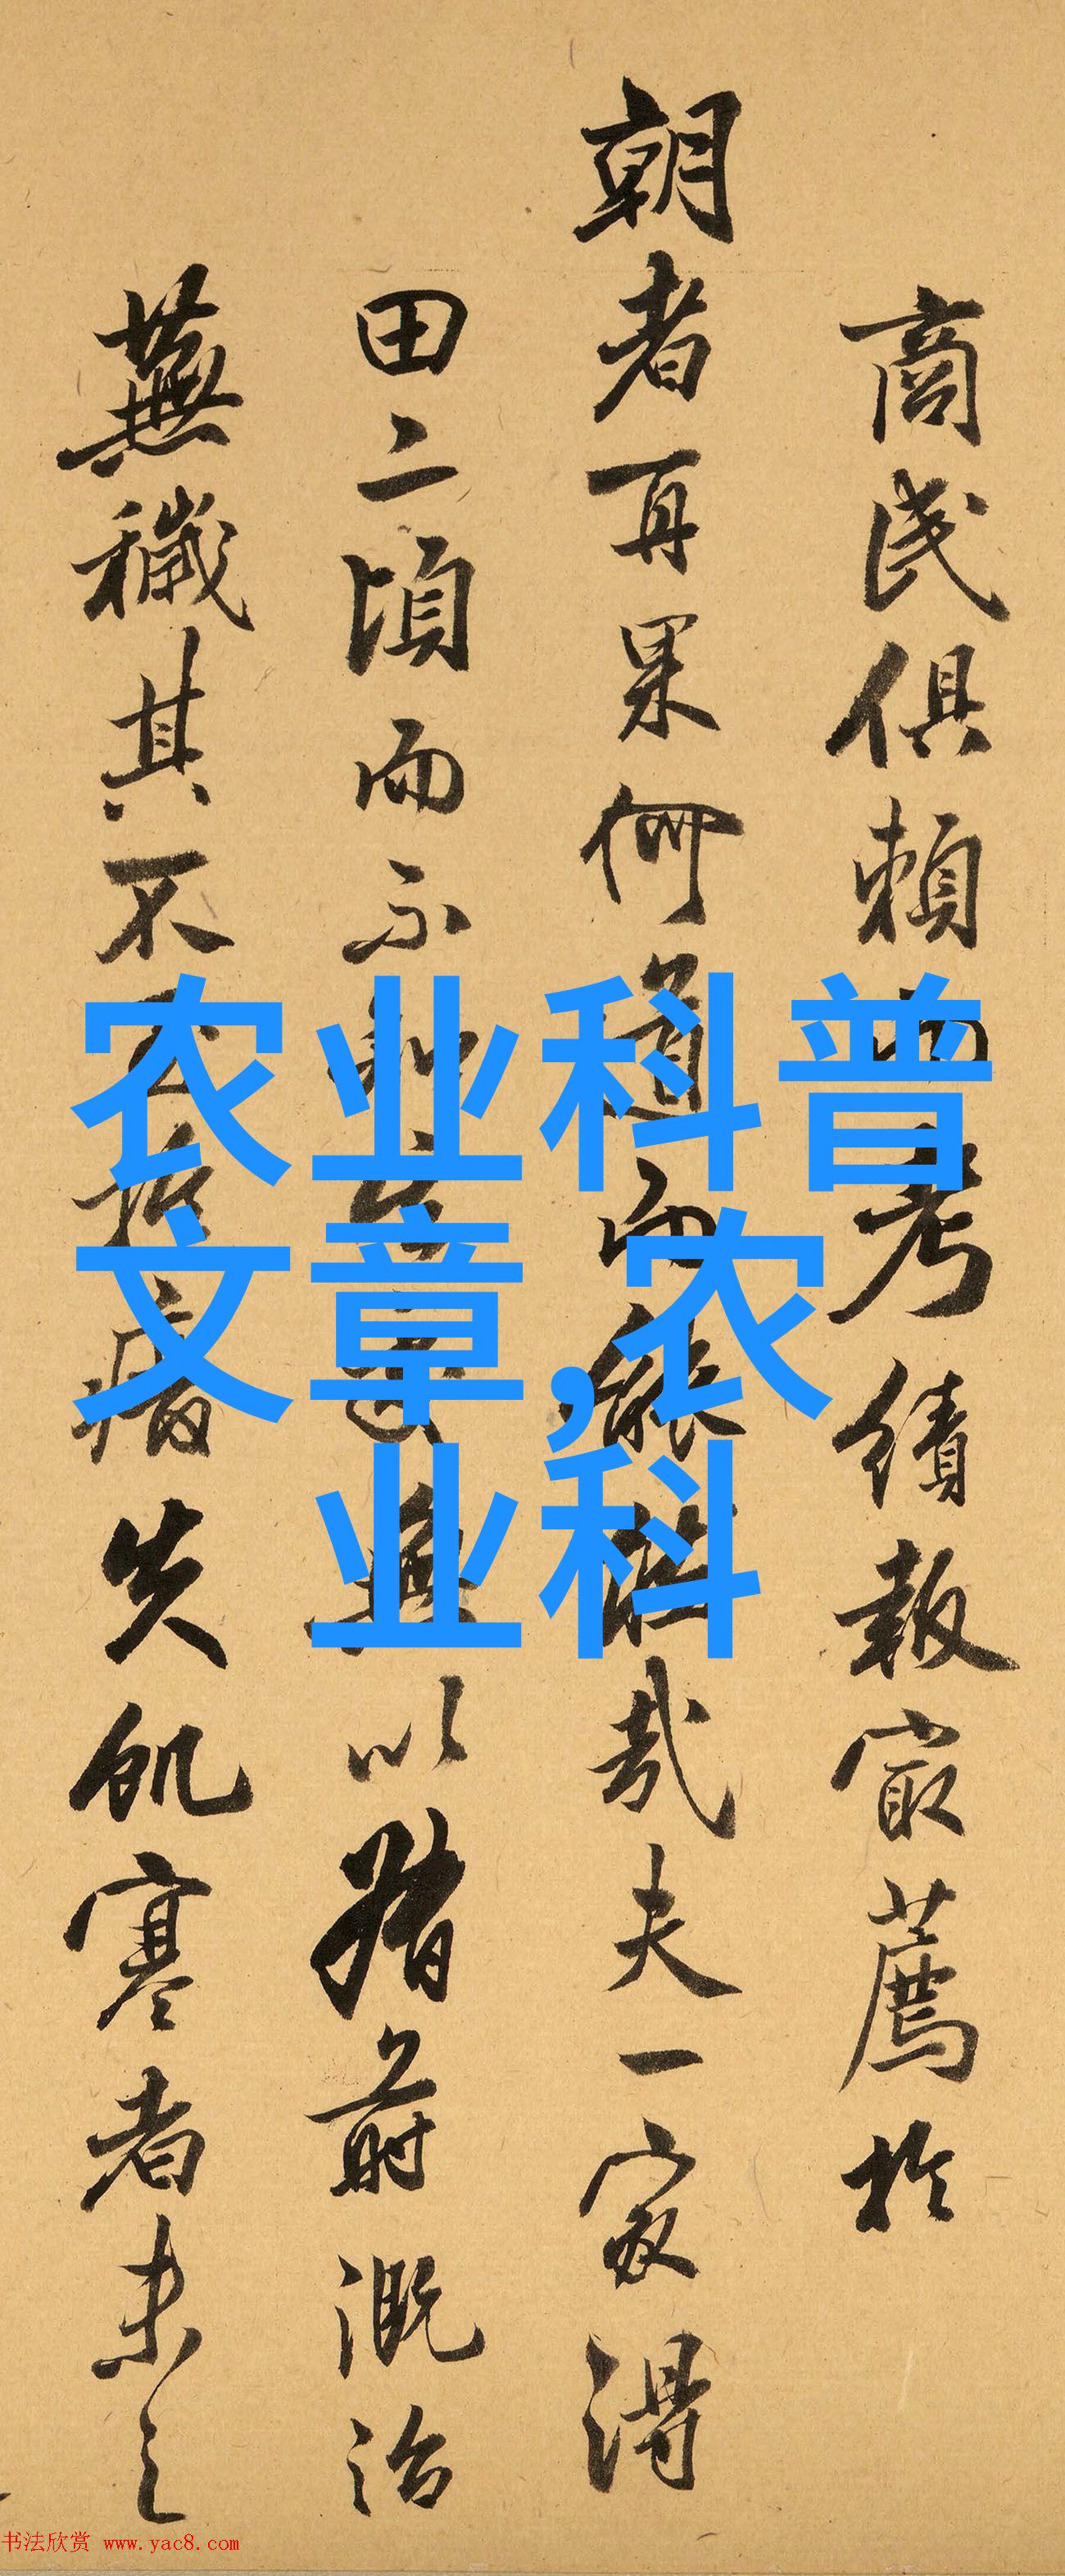 商民俱賴 考績報最薦於
朝者再果何道而能 哉夫一家得
田二頃而不 以 前溉治
蕪穢其不 失飢寒者未之
农业科普
文章,农
业科
书法欣赏 www.yac8.com